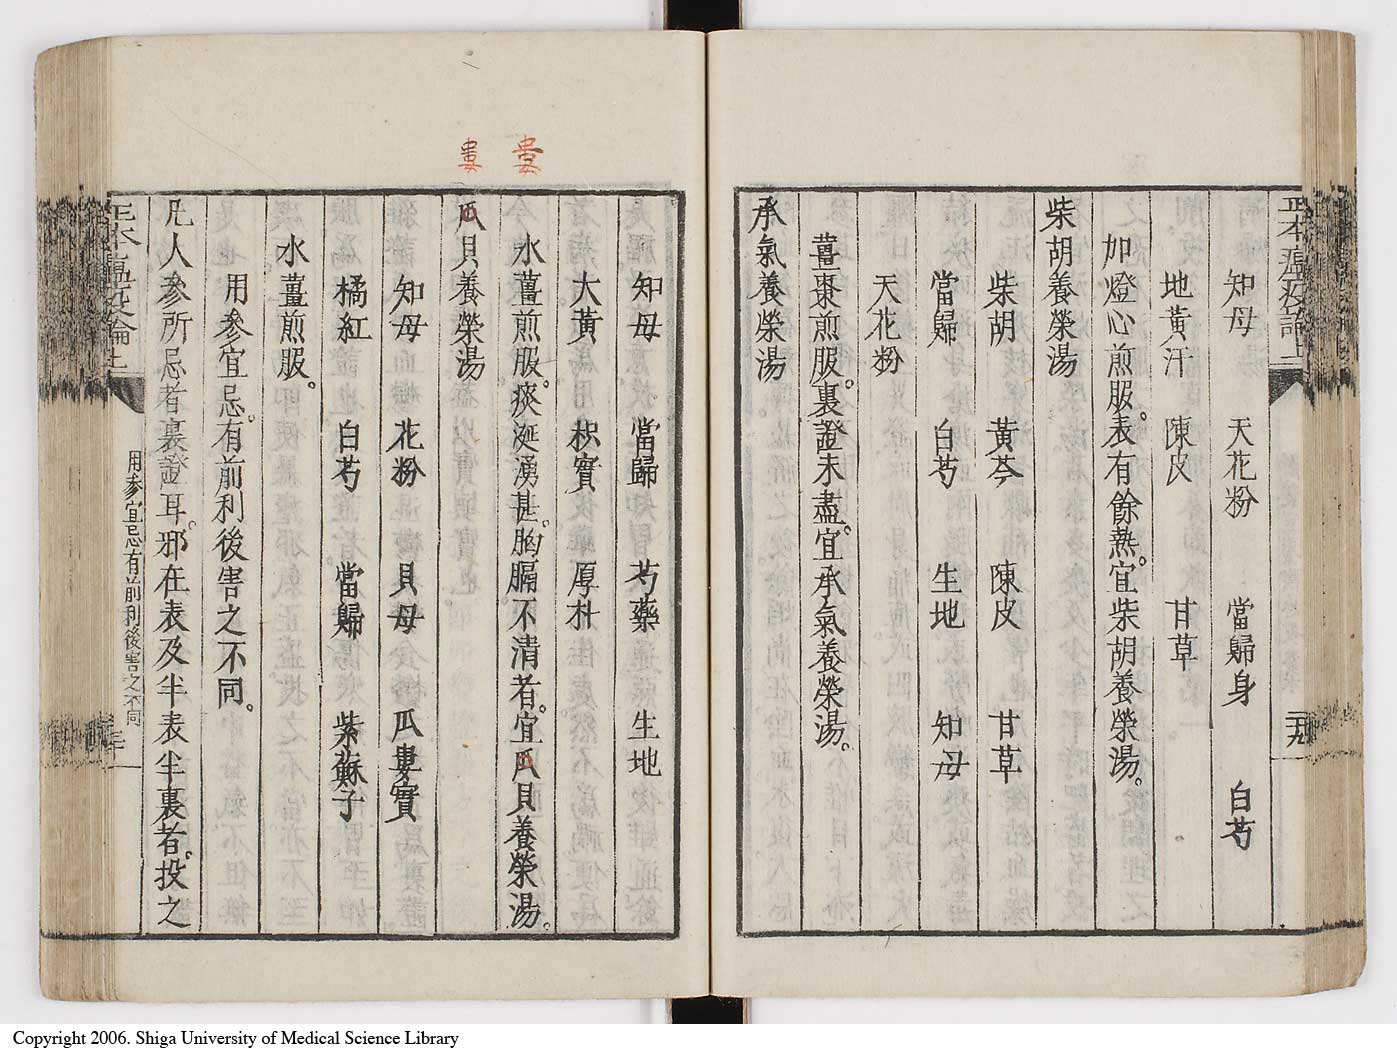 正本溫疫論上
二十九
知母 天花粉 當歸身 白芍
地黃汗 陳皮 甘草
加燈心煎服。表有餘熱。宜柴胡養榮湯。
柴胡養榮湯
柴胡 黃芩 陳皮 甘草
當歸 白芍 生地 知母
天花粉
薑棗煎服。裏證未盡。宜承氣養榮湯。
承氣養榮湯
知母 當歸 芍藥 生地
大黃 枳實 厚朴
水薑煎服。痰涎湧甚。胸膈不清者。宜瓜貝養榮湯。
蔞
瓜貝養榮湯
蔞
知母 花粉 貝母 瓜蔞實
橘紅 白芍 當歸 紫蘇子
水薑煎服。
用參宜忌。有前利後害之不同。
凡人參所忌者裏證耳。邪在表及半表半裏者。投之
正本溫疫論上
用參宜忌有前利後害之不同
三十
Copyright 2006. Shiga University of Medical Science Library